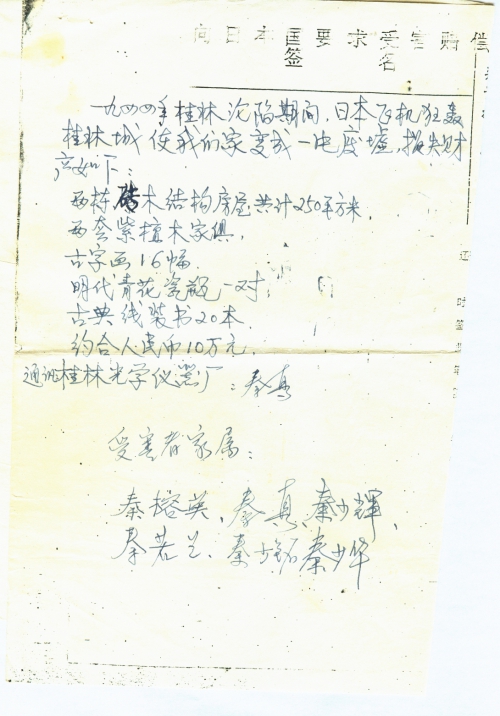 向日本国要求受害赔偿
签名
一九四四年桂林沦陷期间，日本飞机狂轰
桂林城使我们家变成一电废墟，损失财
产如下：
两栋砖木结构房屋共计250平方米，
两套紫檀木家俱，
古字画16幅，
明代青花瓷瓶一对
古典线装书20本，
约合人民币10万元，
通讯桂林光学仪器厂：秦真
受害者家属：
秦榕英、秦真、秦少辉、
秦若兰、秦少铭 秦少华